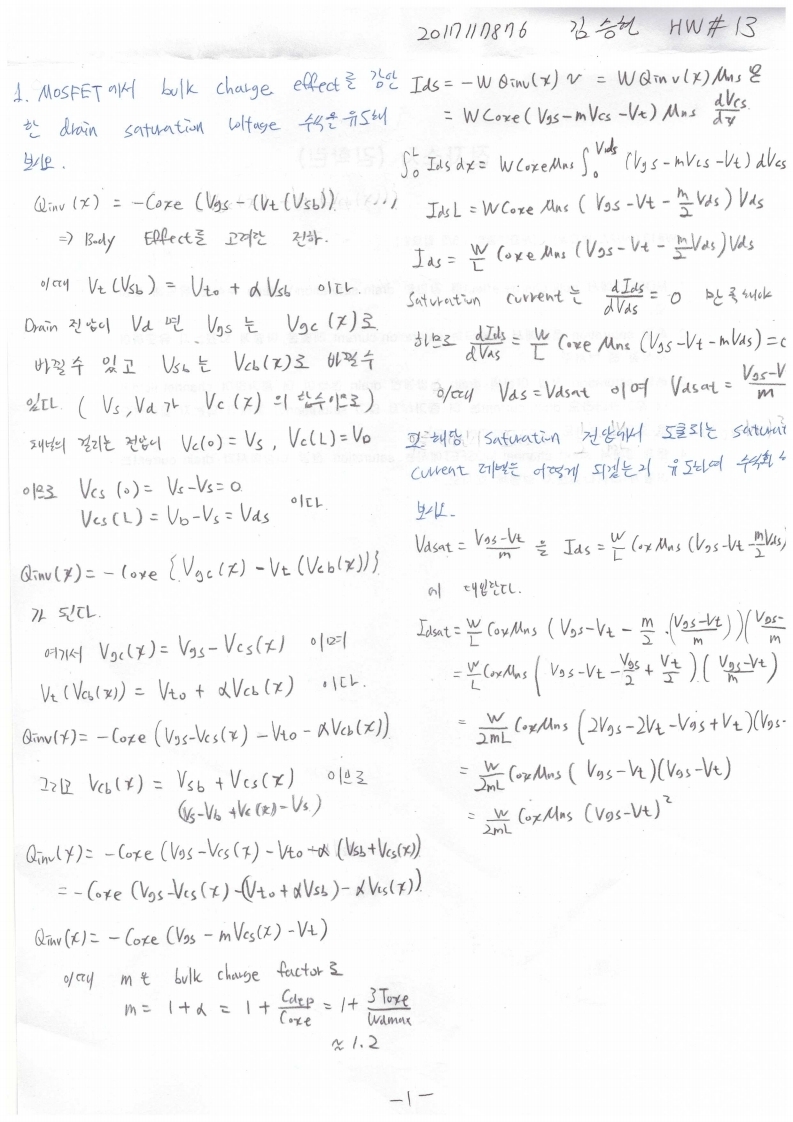 2017117876 김승현 HW#13
1. MOSFET에서 bulk charge effect를 감안
한 drain saturation voltage 수식을 유도해
보시오.
Qinv(x) = -Coxe (Vgs - (Vt(Vsb))
=> Body Effect를 고려한 전하.
이때 Vt(Vsb) = Vto + αVsb 이다.
Drain 전압이 Vd 면 Vgs 는 Vgc(x)로
바뀔 수 있고 Vsb는 Vcb(x)로 바뀔 수
있다. (Vs, Vd가 Vc(x)의 함수이므로)
채널의 걸리는 전압이 Vc(0)=Vs, Vc(L)=VD
이므로 Vcs(0) = Vs-Vs=0
Vcs(L) = VD-Vs = Vds 이다.
Qinv(x) = -Coxe {Vgc(x) - Vt(Vcb(x))}
가 된다.
여기서 Vgc(x) = Vgs - Vcs(x) 이며
Vt(Vcb(x)) = Vto + αVcb(x) 이다.
Qinv(x) = -Coxe (Vgs-Vcs(x) - Vto - αVcb(x))
그리고 Vcb(x) = Vsb + Vcs(x) 이므로
(Vs-Vb + Vc(x) - Vs)
Qinv(x) = -Coxe (Vgs - Vcs(x) - Vto - α (Vsb+Vcs(x))
= -Coxe (Vgs - Vcs(x) - (Vto + αVsb) - αVcs(x))
Qinv(x) = -Coxe (Vgs - mVcs(x) - Vt)
이때 m은 bulk charge factor로
m = 1 + α = 1 + Cdep/Coxe = 1 + 3Toxe/Wdmax
≈ 1.2
Ids = -W Qinv(x) v = W Qinv(x) μns E
= W Coxe (Vgs - mVcs - Vt) μns dVcs/dx
∫₀ᴸ Ids dx = W Coxe μns ∫₀^Vds (Vgs - mVcs - Vt) dVcs
Ids L = W Coxe μns (Vgs - Vt - m/2 Vds) Vds
Ids = W/L Coxe μns (Vgs - Vt - m/2 Vds) Vds
Saturation current는 dIds/dVds = 0 만족해야
하므로 dIds/dVds = W/L Coxe μns (Vgs - Vt - mVds) =
이때 Vds = Vdsat 이며 Vdsat = Vgs-V/m
또 해당 Saturation 전압에서 도출되는 saturat
current 레벨은 어떻게 되겠는지 유도하며 수식화
보시오.
Vdsat = Vgs-Vt/m 을 Ids = W/L Cox μns (Vgs - Vt - m/2 Vds)
에 대입한다.
Idsat = W/L Cox μns (Vgs - Vt - m/2 · (Vgs-Vt/m)) (Vgs-/m
= W/L Cox μns (Vgs - Vt - Vgs/2 + Vt/2) (Vgs-Vt/m)
= W/2mL Cox μns (2Vgs - 2Vt - Vgs + Vt) (Vgs-
= W/2mL Cox μns (Vgs - Vt)(Vgs - Vt)
= W/2mL Cox μns (Vgs - Vt)²
-1-